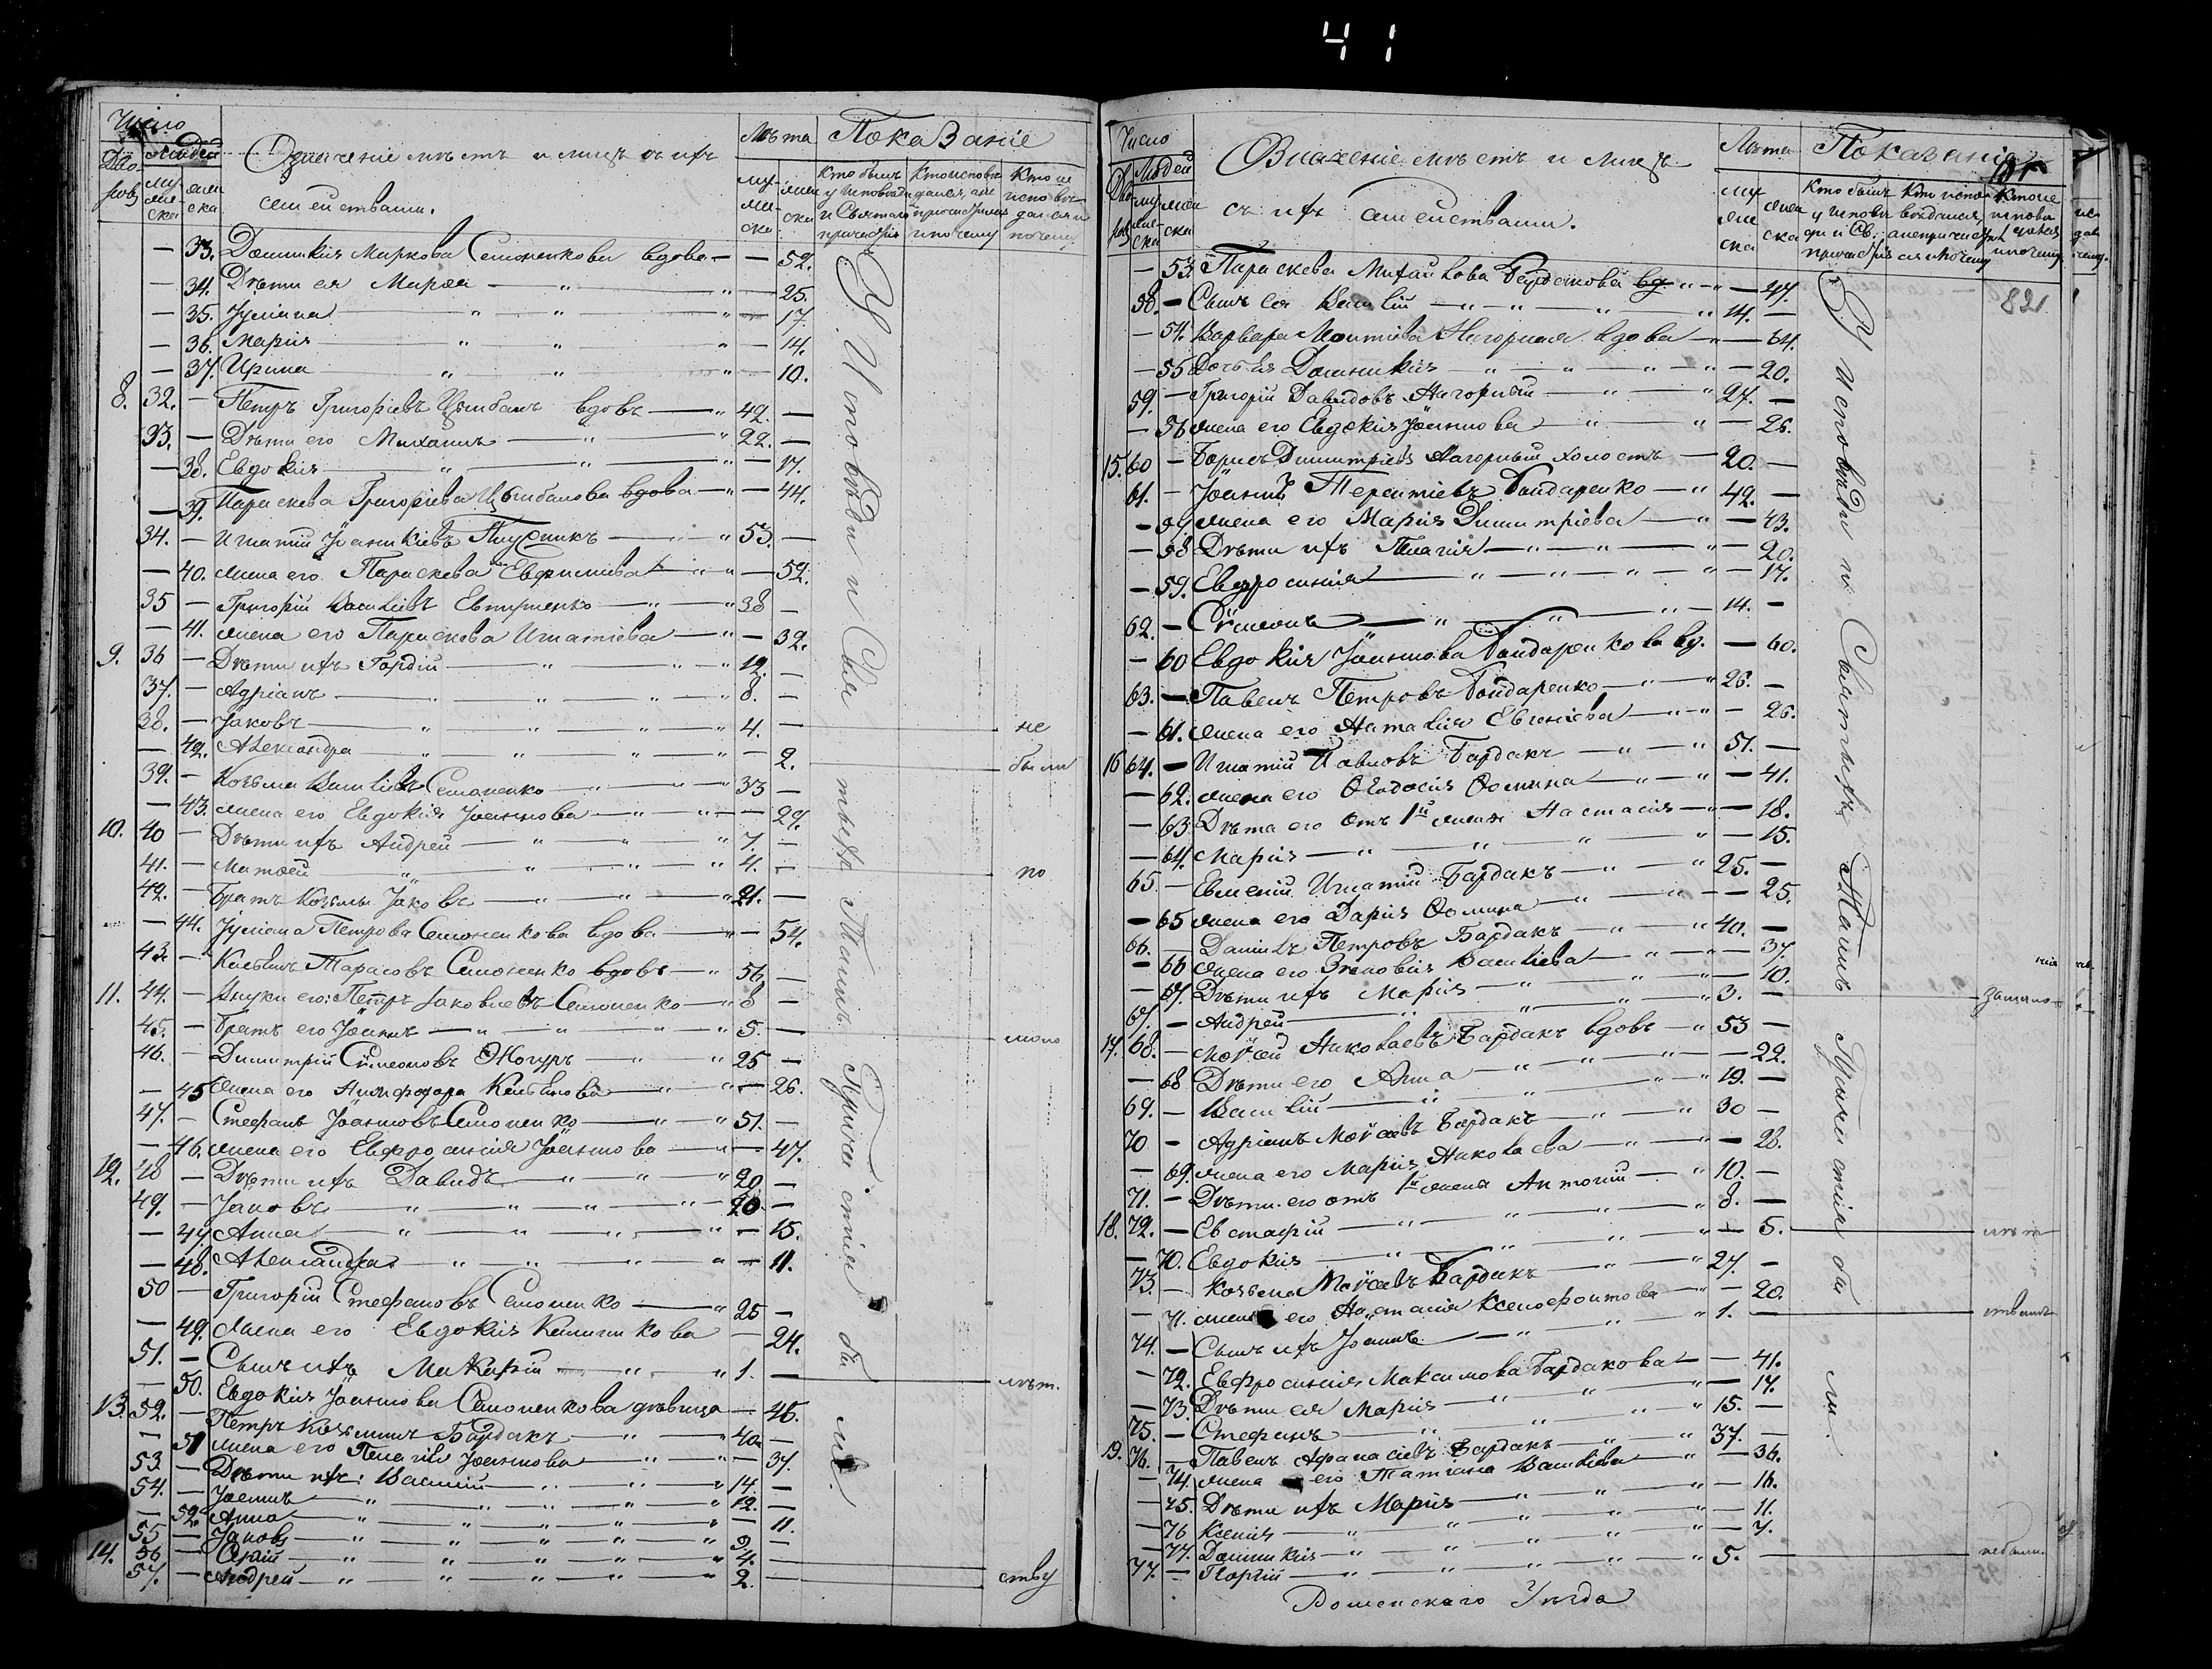 41
Число
Дво-
ровъ
Людей
му-
жеска
жен
ска
Означеніе мѣстъ и лицъ съ ихъ
семействами.
Лѣта
му-
жс-
ска
жен
ска
Показаніе
Кто былъ
у исповѣди
и Святаго
причастія
Кто исповѣ-
дался, а не
причастился
и почему
Кто не
исповѣ-
дался и
почему.
— 33. Домникія Маркова Семоненкова вдова — — 52.
— 34. Дѣти ея Марѳа — „ — „ — 25.
— 35. Іуліана — „ „ „ — 17.
— 36. Марія „ „ „ — 14.
— 37. Ирина „ „ „ — 10.
8. 32. — Петръ Григоріевъ Цымбалъ вдовъ — „ 42. —
33. — Дѣти его Михаилъ — „ — „ 22. —
— 38. Евдокія — „ — „ — „ — 17.
— 39. Параскева Григоріева Цымбалова вдова — „ — 44.
34. — Игнатій Іоаникіевъ — „ — „ 53. —
— 40. жена его Параскева Евфиміева — „ „ — 52.
35 — Григорій Василіевъ Евтушенко — „ — „ 38 —
— 41. жена его Параскева Игнатіева — „ — 32.
9. 36 — Дѣти ихъ Гордій — „ — „ — 12. —
37. — Адріанъ — „ „ „ „ 8. —
38. — Іаковъ — „ „ „ „ 4. — не
— 42. Александра — „ „ „ „ — 2. были
39. — Козьма Василіевъ Семоненко — „ — „ 33 —
— 43. жена его Евдокія Іоаннова — „ — „ — 29.
10. 40 — Дѣти ихъ Андрей — „ „ „ 7. —
41. — Матѳей — „ „ „ „ 4. — по
42. — Братъ Козьмы Іаковъ — „ — „ — „ 21. —
— 44. Іуліана Петрова Семоненкова вдова — „ — 54.
43. — Тарасовъ Семоненко вдовъ — „ 56. —
11. 44. — Внуки его: Петръ Іаковлевъ Семоненко — „ 8 —
45. — Братъ его Іоаннъ — „ — „ — „ 5. — мало
46. — Димитрій Сѵмеоновъ — „ „ 25 —
— 45 жена его Нимфодора — „ „ — 26.
47. — Стефанъ Іоанновъ Семоненко — „ — „ 51. —
— 46. жена его Евфросинія Іоаннова — „ — 47.
12. 48 — Дѣти ихъ Давидъ — „ — „ — „ 20. —
49. — Іаковъ — „ — „ — „ — „ 20. —
— 47. Анна — „ — „ — „ — „ — 15.
— 48. Александра — „ — „ — „ „ — 11.
50 — Григорій Стефановъ Семоненко — „ 25 —
— 49. Жена его Евдокія — 24.
51. — Сынъ ихъ Макарій — „ — „ 1. — лѣт.
— 50. Евдокія Іоаннова Семоненкова дѣвица — 46.
13. 52. — Петръ Козьминъ Бардакъ — „ — „ 40. —
— 51 жена его Пелагія Іоаннова — „ — „ — 37.
53. — Дѣти ихъ: Василій — „ — „ — „ 14. —
54. — Іоаннъ — „ — „ — „ — „ 12. —
— 52. Анна — „ — „ — „ — „ — 11.
55 — Іаковъ — „ — „ — „ — „ 9. —
14. 56 — — „ — „ — „ — „ 4. —
57. — Андрей — „ „ „ „ 2. — ству
У Исповѣди и Свя тыхъ Таинъ Прича стія бы ли.
Число
Дво-
ровъ
Людей
му-
жс-
ска
жен
ска
Означеніе мѣстъ и лицъ
съ ихъ семействами.
Лѣта
му
жс
ска
жен
ска
Показаніе
Кто былъ
у исповѣ
ди и Св.
причастія
Кто испо-
вѣдался,
а не причаст
ся и почему
Кто не
исповѣ
дался
и почему.
821
— 53 Параскева Михайлова вд. „ — 47.
58. — Сынъ ея Василій — „ — „ — „ — „ 14. —
— 54. Варвара Нагорная вдова — „ — 64.
— 55 Дочь ея Домникія — „ — „ — „ — „ — 20.
59. — Григорій Давидовъ Нагорный — „ — „ 27. —
— 56 жена его Евдокія Іоаннова — „ — „ — 26.
15. 60 — Борисъ Димитріевъ Нагорный холостъ — 20. —
61. — Іоаннъ Терентіевъ Бондаренко — „ 42. —
— 57 жена его Марія Димитріева — „ — 43.
— 58 Дѣти ихъ Пелагія — „ — „ — „ — 20.
— 59. Евфросинія — „ — „ — „ — „ — 17.
62. — Сѵмеонъ — „ — „ — „ — 14. —
— 60 Евдокія Іоаннова Бондаренкова вд. — 60.
63. — Павелъ Петровъ Бондаренко — „ — „ 26. —
— 61. жена его Наталія Евгеніева — „ — „ — 26.
16 64. — Игнатій Павловъ Бардакъ — „ — „ 51. —
— 62. жена его Ѳеодосія Ѳомина — „ — „ — 41.
— 63 Дѣти его отъ 1й жены Настасія — „ — 18.
— 64. Марія — „ — „ „ „ — 15.
65. — Евменій Игнатій Бардакъ — „ — „ 25. —
— 65 жена его Дарія Ѳомина — „ „ — 25.
66. — Даніилъ Петровъ Бардакъ — „ — „ 40. —
— 66 жена его Зѣновія Василіева — „ — „ — 37.
— 67. Дѣти ихъ Марія — „ „ „ — 10.
67. — Андрей — „ „ „ 3. — за мало-
17. 68. — Моѵсей Николаевъ Бардакъ вдовъ — „ 53 —
— 68 Дѣти его Анна — „ — „ — „ — 22.
69. — Василій — „ „ „ 19. —
70 — Адріанъ Моѵсеевъ Бардакъ — „ — „ 30 —
— 69. жена его Марія Николаева — „ — 28.
71. — Дѣти его отъ 1й жены Антоній — „ 10. —
18. 72. — Евстафій — „ „ „ „ 8. —
— 70. Евдокія — „ „ „ „ — 5. — лѣт
73. — Козьма Моѵсеевъ Бардакъ — „ — „ 27. —
— 71. жена его Настасія Ксенофонтова — „ — 20.
74. — Сынъ ихъ Іоаннъ — „ „ „ 1. — ствомъ
— 72. Евфросинія Максимова Бардакова — — 41.
— 73. Дѣти ея Марія — „ „ „ — 17.
75. — Стефанъ — „ „ „ 15. —
19. 76. — Павелъ Афанасіевъ Бардакъ — „ 37. —
— 74. жена его Татіана Василіева — „ — 36.
— 75. Дѣти ихъ Марія — „ „ „ — 16.
— 76 Ксенія — „ „ „ „ — 11.
— 77. Домникія — „ „ „ „ — 7.
77. — Георгій — „ — „ — „ — „ 5. — не были
У Исповѣди и Святыхъ Таинъ Причастія бы ли.
Роменскаго Уѣзда